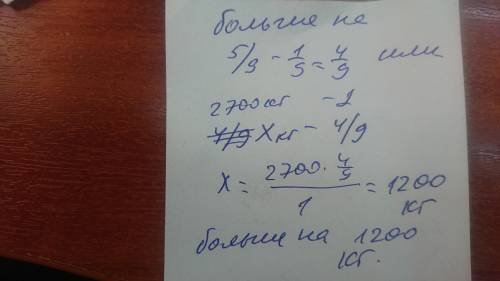 больше на
5/9 - 1/9 = 4/9 или
2700 кг - 1
X кг - 4/9
X = 2700 · 4/9 / 1 = 1200 кг
больше на 1200
кг.